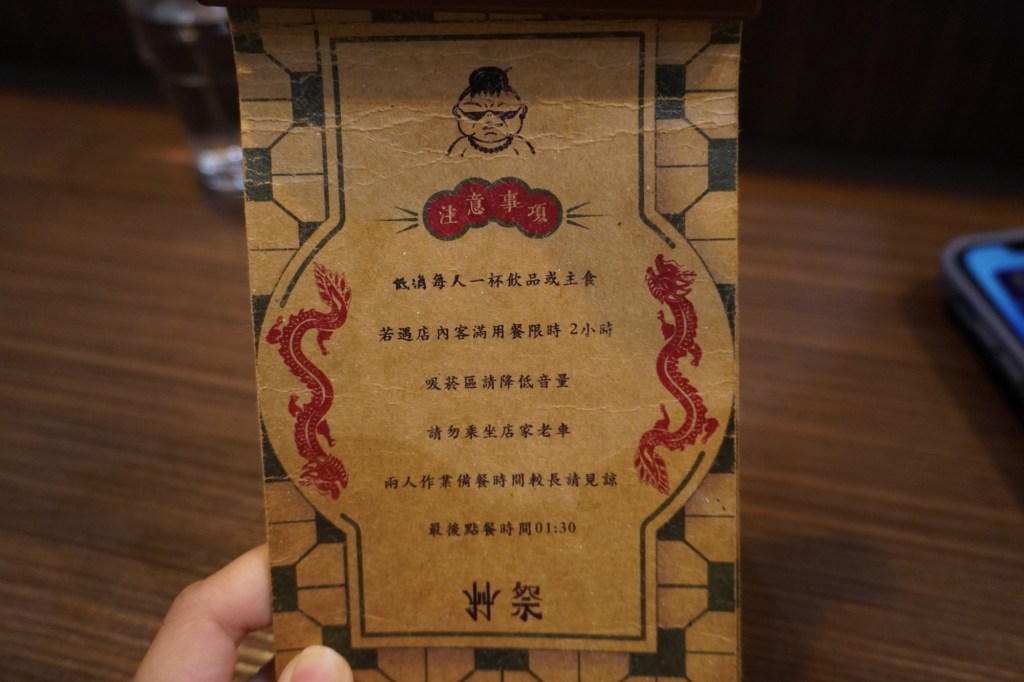 注意事項
低消每人一杯飲品或主食
若遇店內客滿用餐限時 2小時
吸菸區請降低音量
請勿乘坐店家老車
兩人作業備餐時間較長請見諒
最後點餐時間01:30